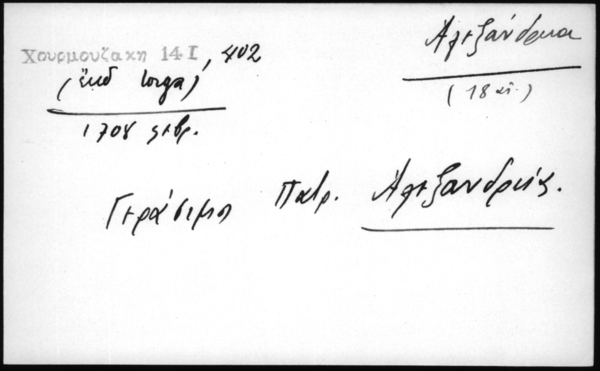 Χουρμουζακη 14 Ι, 402
(ἔκδ Iorga)
1708 φεβρ.
Ἀλεξάνδρεια
(18 αἰ.)
Γεράσιμος Πατρ. Ἀλεξανδρείας.